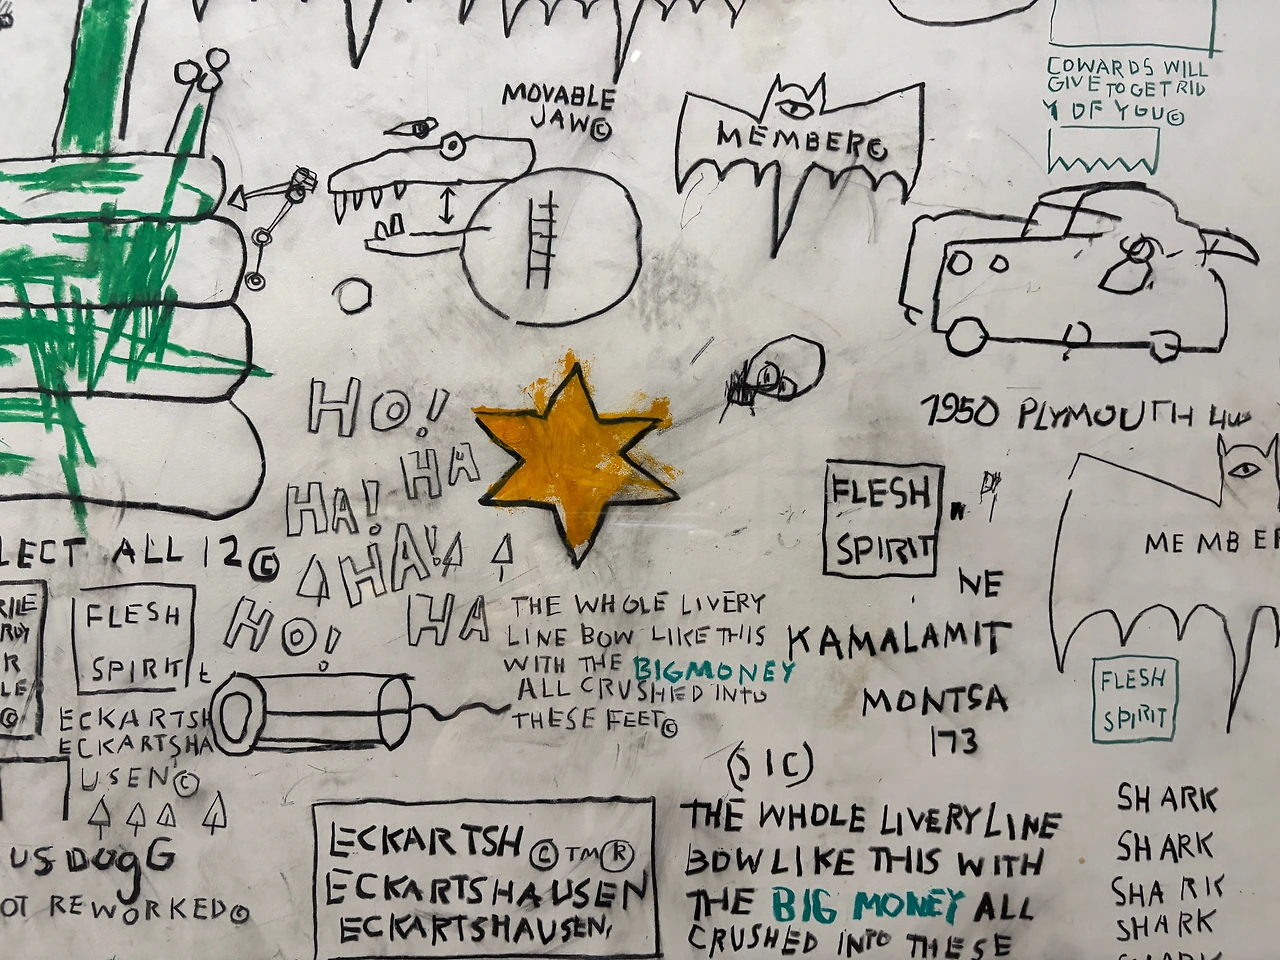 MOVABLE
JAW©
MEMBER©
COWARDS WILL
GIVE TO GET RID
OF YOU©
1950 PLYMOUTH
HO!
HA
HA!
HA!
HO!
HA
LECT ALL 12©
FLESH
SPIRIT
ECKARTSH
ECKARTSHA
USEN©
USDOgG
OT REWORKED©
THE WHOLE LIVERY
LINE BOW LIKE THIS
WITH THE BIGMONEY
ALL CRUSHED INTO
THESE FEET©
FLESH
SPIRIT
NE
KAMALAMIT
MONTSA
173
MEMBER
FLESH
SPIRIT
ECKARTSH © TM ®
ECKARTSHAUSEN
ECKARTSHAUSEN,
(SIC)
THE WHOLE LIVERY LINE
BOW LIKE THIS WITH
THE BIG MONEY ALL
CRUSHED INTO THESE
SHARK
SHARK
SHARK
SHARK